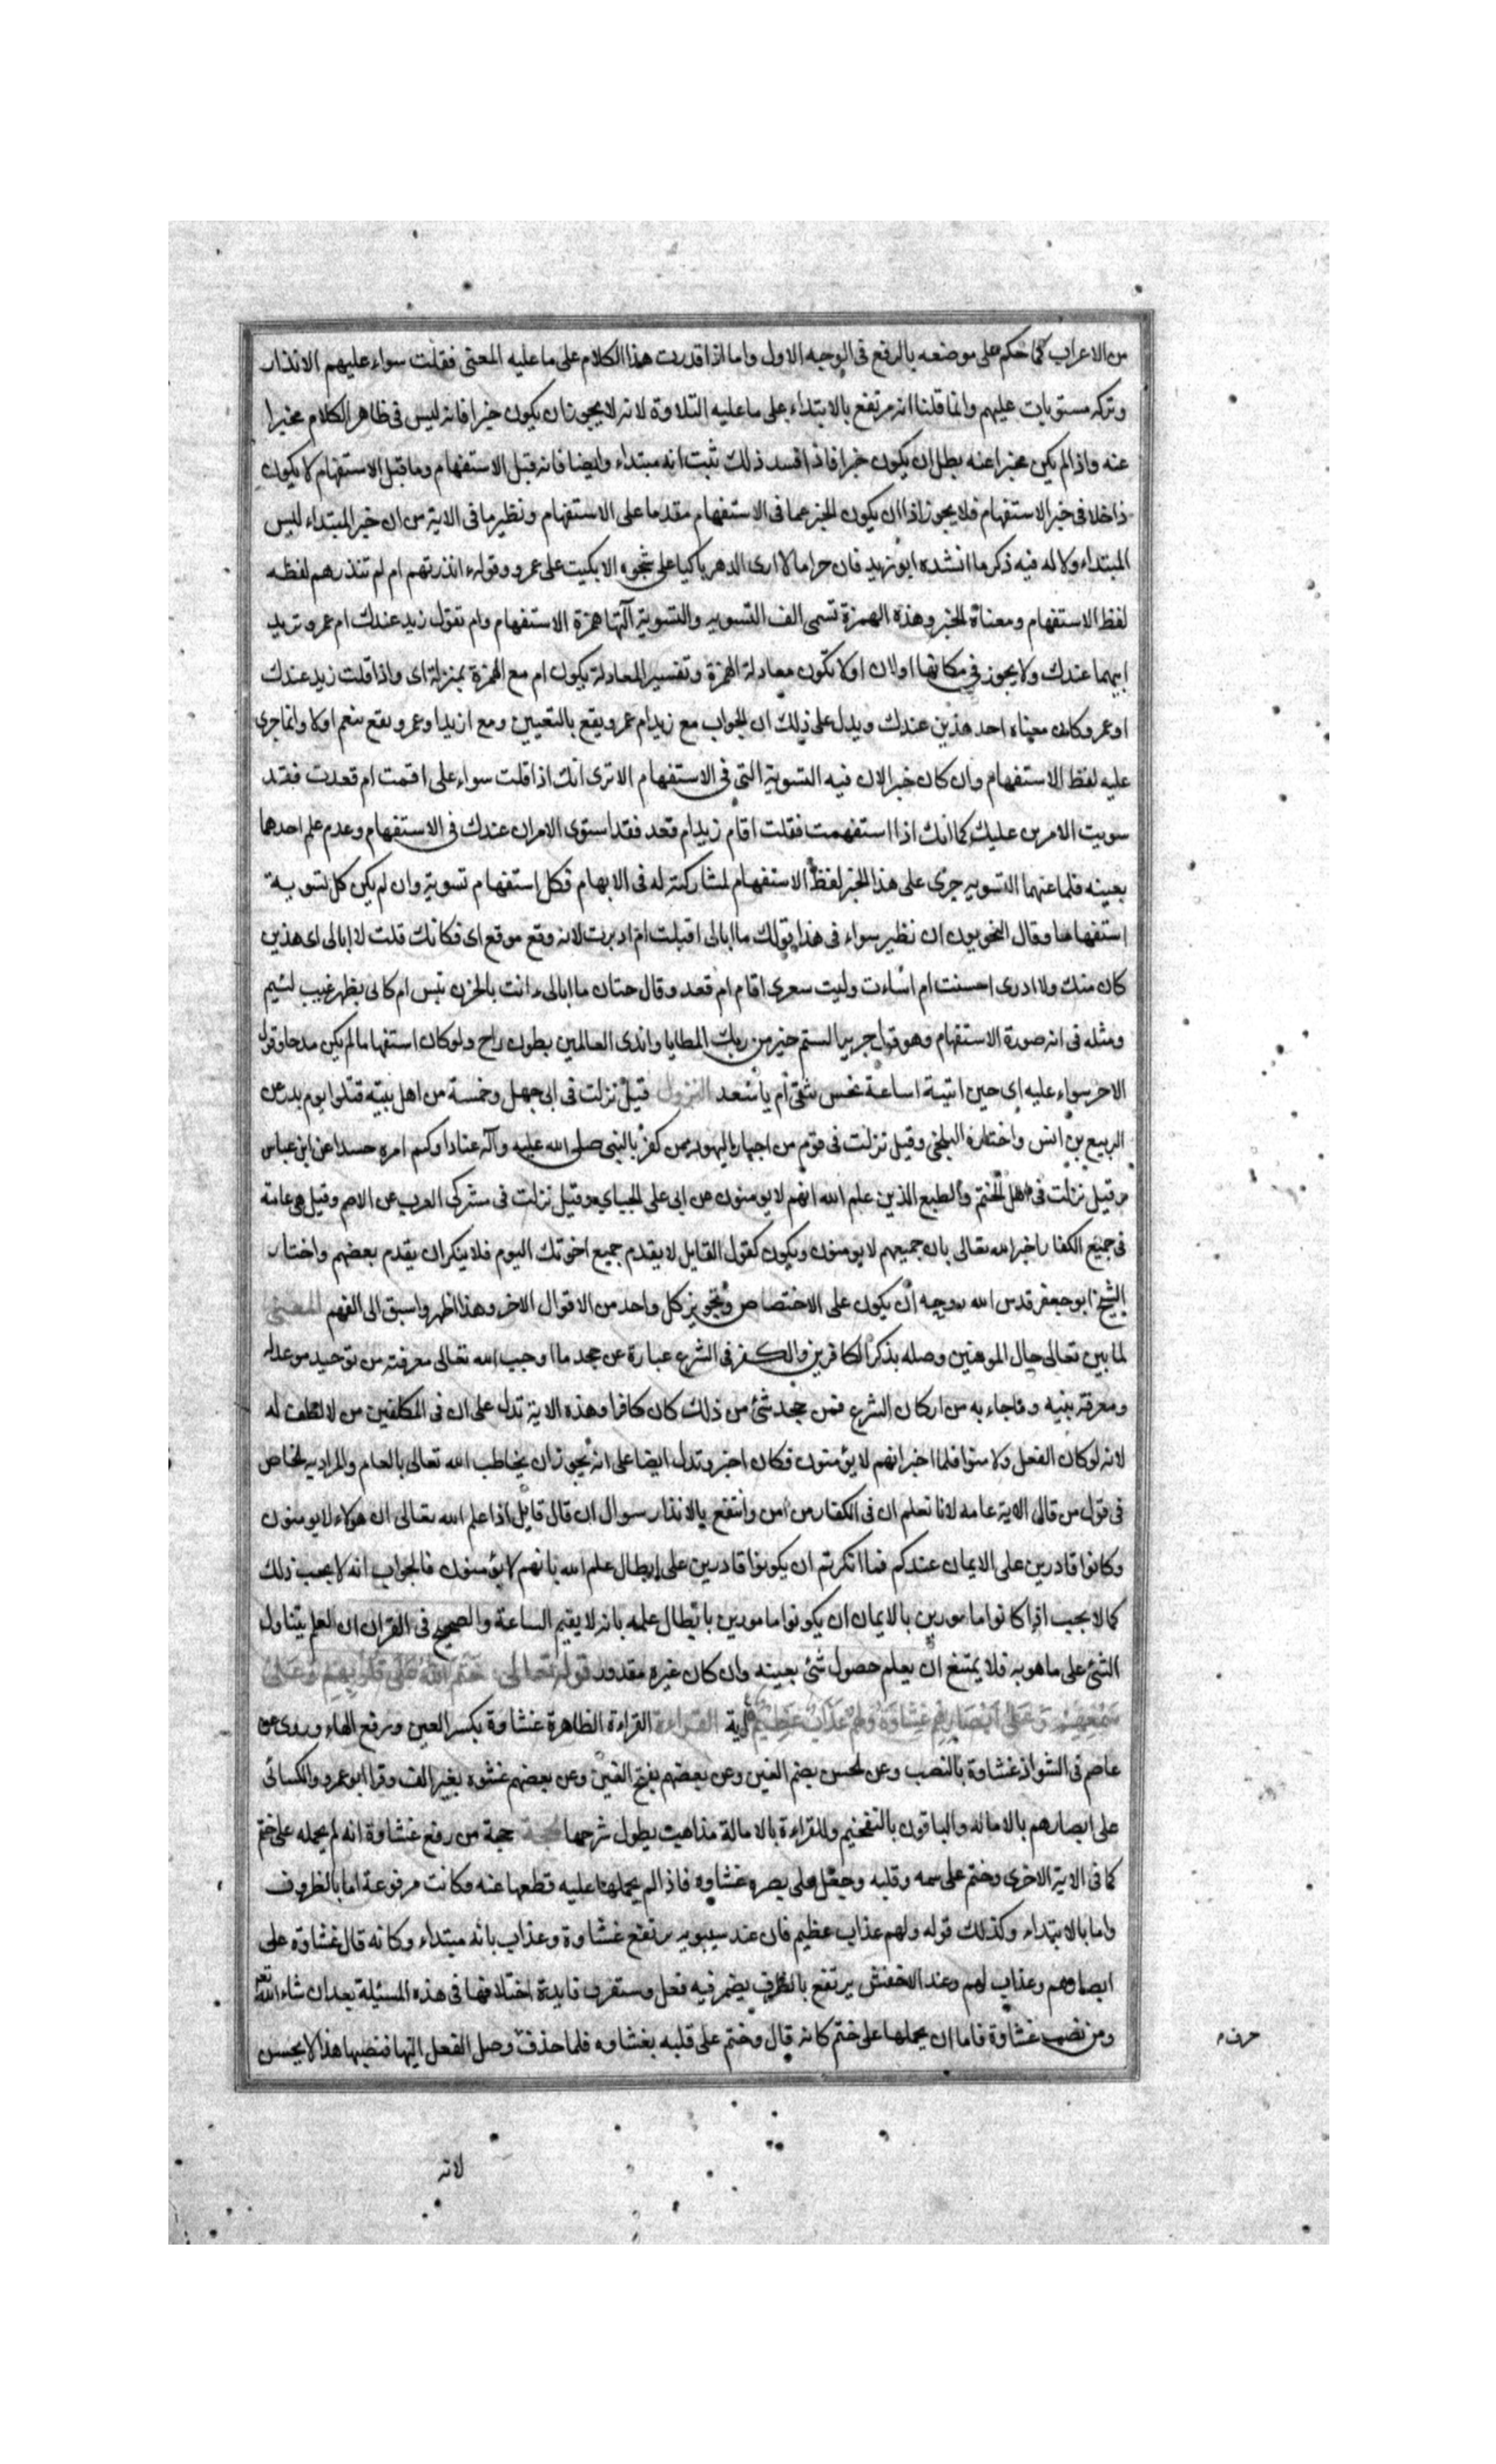 من الاعراب كما حكم على موضعه بالرفع فى الوجه الاول واما اذا قدرت هذا الكلام على ما عليه المعنى فقلت سواء عليهم الانذار
وتركه مستويات عليهم وانما قلنا انه مرتفع بالابتداء على ما عليه التلاوة لانه لا يجوز ان يكون خبرا فانه ليس فى ظاهر الكلام مخبرا
عنه واذا لم يكن مخبرا عنه بطل ان يكون خبرا فاذا فسد ذلك ثبت انه مبتداء وايضا فانه قبل الاستفهام وما قبل الاستفهام لا يكون
داخلا فى خبر الاستفهام فلا يجوز اذا ان يكون الخبر عما فى الاستفهام مقدما على الاستفهام ونظير ما فى الاية من ان خبر المبتداء ليس
المبتداء ولا له فيه ذكر ما انشده ابو زيد فان حراما لا ارى الدهر باكيا على شجوه الا بكيت على عمرو وقوله ءانذرتهم ام لم تنذرهم لفظه
لفظ الاستفهام ومعناه الخبر وهذه الهمزة تسمى الف التسويه والتسوية آلتها همزة الاستفهام وام تقول ازيد عندك ام عمرو تريد
ايهما عندك ولا يجوز فى مكانها او لان او لا تكون معادلة الهمزة وتفسير المعادلة يكون ام مع الهمزة بمنزلة اى واذا قلت زيد عندك
او عمرو كان معناه احد هذين عندك ويدل على ذلك ان الجواب مع زيد ام عمرو يقع بالتعيين ومع ازيد او عمرو يقع بنعم او لا وانما جرى
عليه لفظ الاستفهام وان كان خبرا لان فيه التسوية التى فى الاستفهام الا ترى انك اذا قلت سواء على اقمت ام قعدت فقد
سويت الامرين عليك كما انك اذا استفهمت فقلت اقام زيد ام قعد فقد استوى الامران عندك فى الاستفهام وعدم علم احدهما
بعينه فلما عنهما التسويه جرى على هذا الخبر لفظ الاستفهام لمشاركته له فى الابهام فكل استفهام تسوية وان لم يكن كل تسوية
استفهاما وقال النحويون ان نظير سواء فى هذا قولك ما ابالى اقبلت ام ادبرت لانه وقع موقع اى فكانك قلت لا ابالى اى هذين
كان منك ولا ادرى احسنت ام اساءت وليت سعرى اقام ام قعد وقال حسان ما ابالى ءانت بالحزن تيس ام لحانى بظهر غيب لئيم
ومثله فى انه صورة الاستفهام وهو قول جرير الستم خير من ركب المطايا واندى العالمين بطون راح ولو كان استفهاما لم يكن مدحا وقول
الاخر سواء عليه اى حين اتيته اساعة نحس تتقى ام باسعد النزول قيل نزلت فى ابى جهل وخمسة من اهل بيته قتلوا يوم بدر عن
الربيع بن انس واختاره البلخى وقيل نزلت فى قوم من احبار اليهود ممن كفر بالنبى صلى الله عليه وآله عنادا وكتم امره حسدا عن ابن عباس
وقيل نزلت فى اهل الختم والطبع الذين علم الله انهم لا يومنون عن ابى على الجبايى وقيل نزلت فى مشركى العرب عن الاصم وقيل هى عامة
فى جميع الكفار اخبر الله تعالى بان جميعهم لا يومنون ويكون كقول القايل لا يقدم جميع اخوتك اليوم فلا ينكر ان يقدم بعضهم واختار
الشيخ ابو جعفر قدس الله روحه ان يكون على الاختصاص وتجويز كل واحد من الاقوال الاخر وهذا اظهر واسبق الى الفهم المعنى
لما بين تعالى حال المومنين وصله بذكر الكافرين والكفر فى الشرع عبارة عن جحد ما اوجب الله تعالى معرفته من توحيده وعدله
ومعرفة نبيه وما جاء به من اركان الشرع فمن جحد شئ من ذلك كان كافرا وهذه الاية تدل على ان فى المكلفين من لا لطف له
لانه لو كان الفعل ولامنوا فلما اخبر انهم لا يؤمنون فكان اخبر وتدل ايضا على انه يجوز ان يخاطب الله تعالى بالعام والمراد به الخاص
فى قول من قال الاية عامه لانا نعلم ان فى الكفار من امن وانتفع بالانذار سوال ان قال قايل اذا علم الله تعالى ان هولاء لا يومنون
وكانوا قادرين على الايمان عندكم فما انكرتم ان يكونوا قادرين على ابطال علم الله بانهم لا يؤمنون فالجواب انه لا يجب ذلك
كما لا يجب اذا كانوا مامورين بالايمان ان يكونوا مامورين بابطال علمه بانه لا يقيم الساعة والصحيح فى القران ان العلم يتناول
الشئ على ما هو به فلا يمتنع ان يعلم حصول شئ بعينه وان كان غيره مقدور قوله تعالى ختم الله على قلوبهم وعلى
سمعهم وعلى ابصارهم غشاوة ولهم عذاب عظيم آية القراءة القراءة الظاهرة غشاوة بكسر الغين ورفع الهاء وروى عن
عاصم فى الشواذ غشاوة بالنصب وعن الحسن بضم الغين وعن بعضهم بفتح الغين وعن بعضهم غشوه بغير الف وقرا ابو عمرو والكسائى
على ابصارهم بالاماله والباقون بالتفخيم وللقراءة بالامالة مذاهب يطول شرحها الحجة حجة من رفع غشاوة انه لم يحمله على ختم
كما فى الاية الاخرى وختم على سمعه وقلبه وجعل على بصره غشاوه فاذا لم يحملها عليه قطعها عنه فكانت مرفوعة اما بالظروف
واما بالابتداء وكذلك قوله ولهم عذاب عظيم فان عند سيبويه يرتفع غشاوة وعذاب بانه مبتداء وكانه قال غشاوة على
ابصارهم وعذاب لهم وعند الاخفش يرتفع بالظرف يضمر فيه فعل وستعرف فايدة اختلافهما فى هذه المسئلة بعد ان شاء الله تعم
ومن نصب غشاوة فاما ان يحملها على ختم كانه قال وختم على قلبه بغشاوه فلما حذف وصل الفعل اليها فنصبها هذا لا يحسن
حرف م
لانه